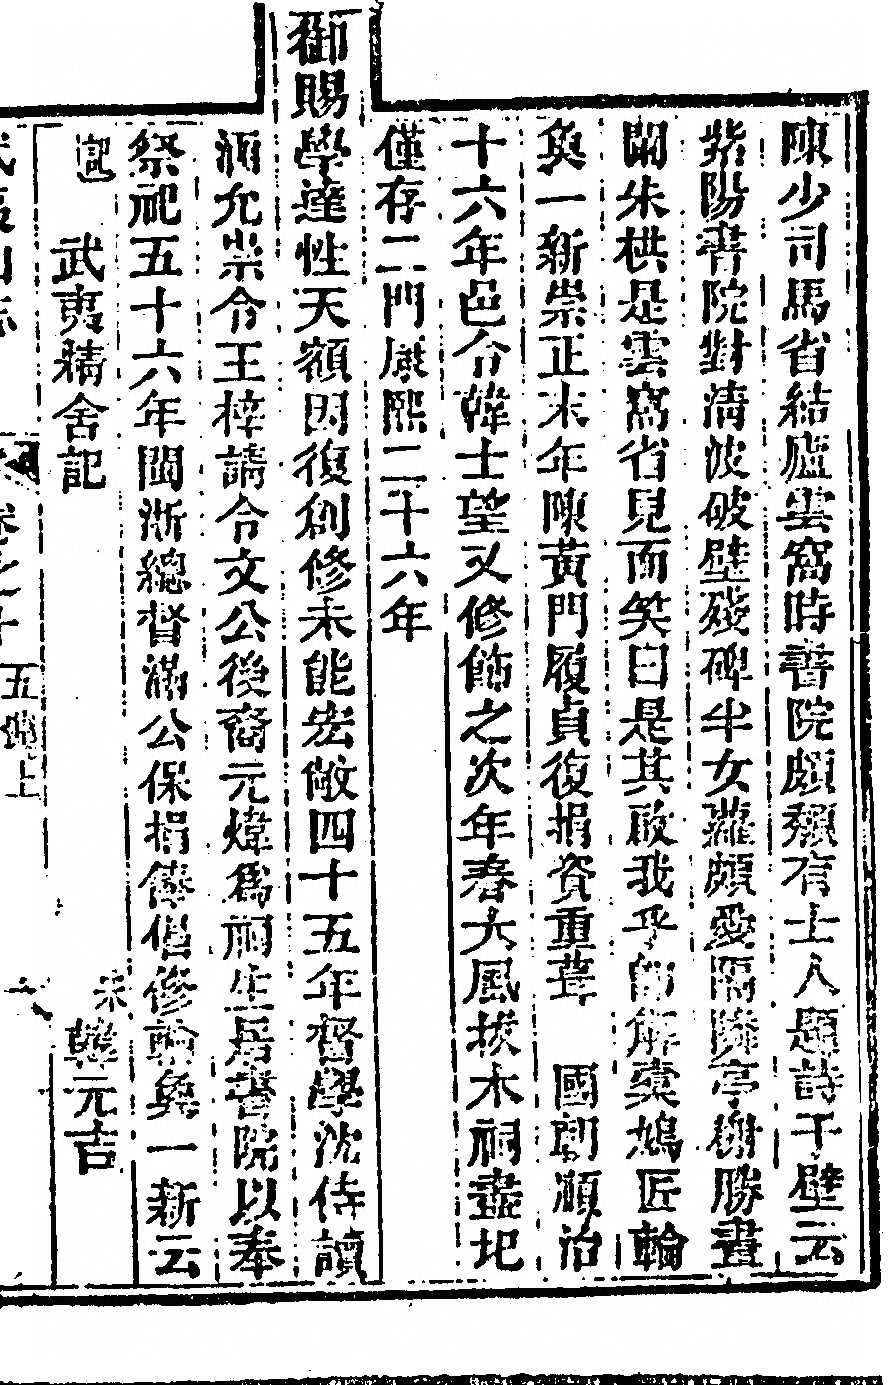 陳少司馬省結廬雲窩時書院頗頹有士人題詩于壁云
紫陽書院對淸波破壁殘碑半女蘿頗愛隔隣亭榭勝畫
闌朱栱是雲窩省見而笑曰是其啟我乎卽解槖鳩匠輪
奐一新崇正末年陳黃門履貞復捐資重葺　國朝順治
十六年邑令韓士望又修飾之次年春大風拔木祠盡圮
僅存二門康熙二十六年
御賜學達性天額因復創修未能宏敞四十五年督學沈侍讀
涵允崇令王梓請令文公後裔元煒爲祠生居書院以奉
祭祀五十六年閩浙總督滿公保捐俸倡修輪奐一新云
記　武夷精舍記　宋韓元吉
武夷山志　卷之十　五曲上